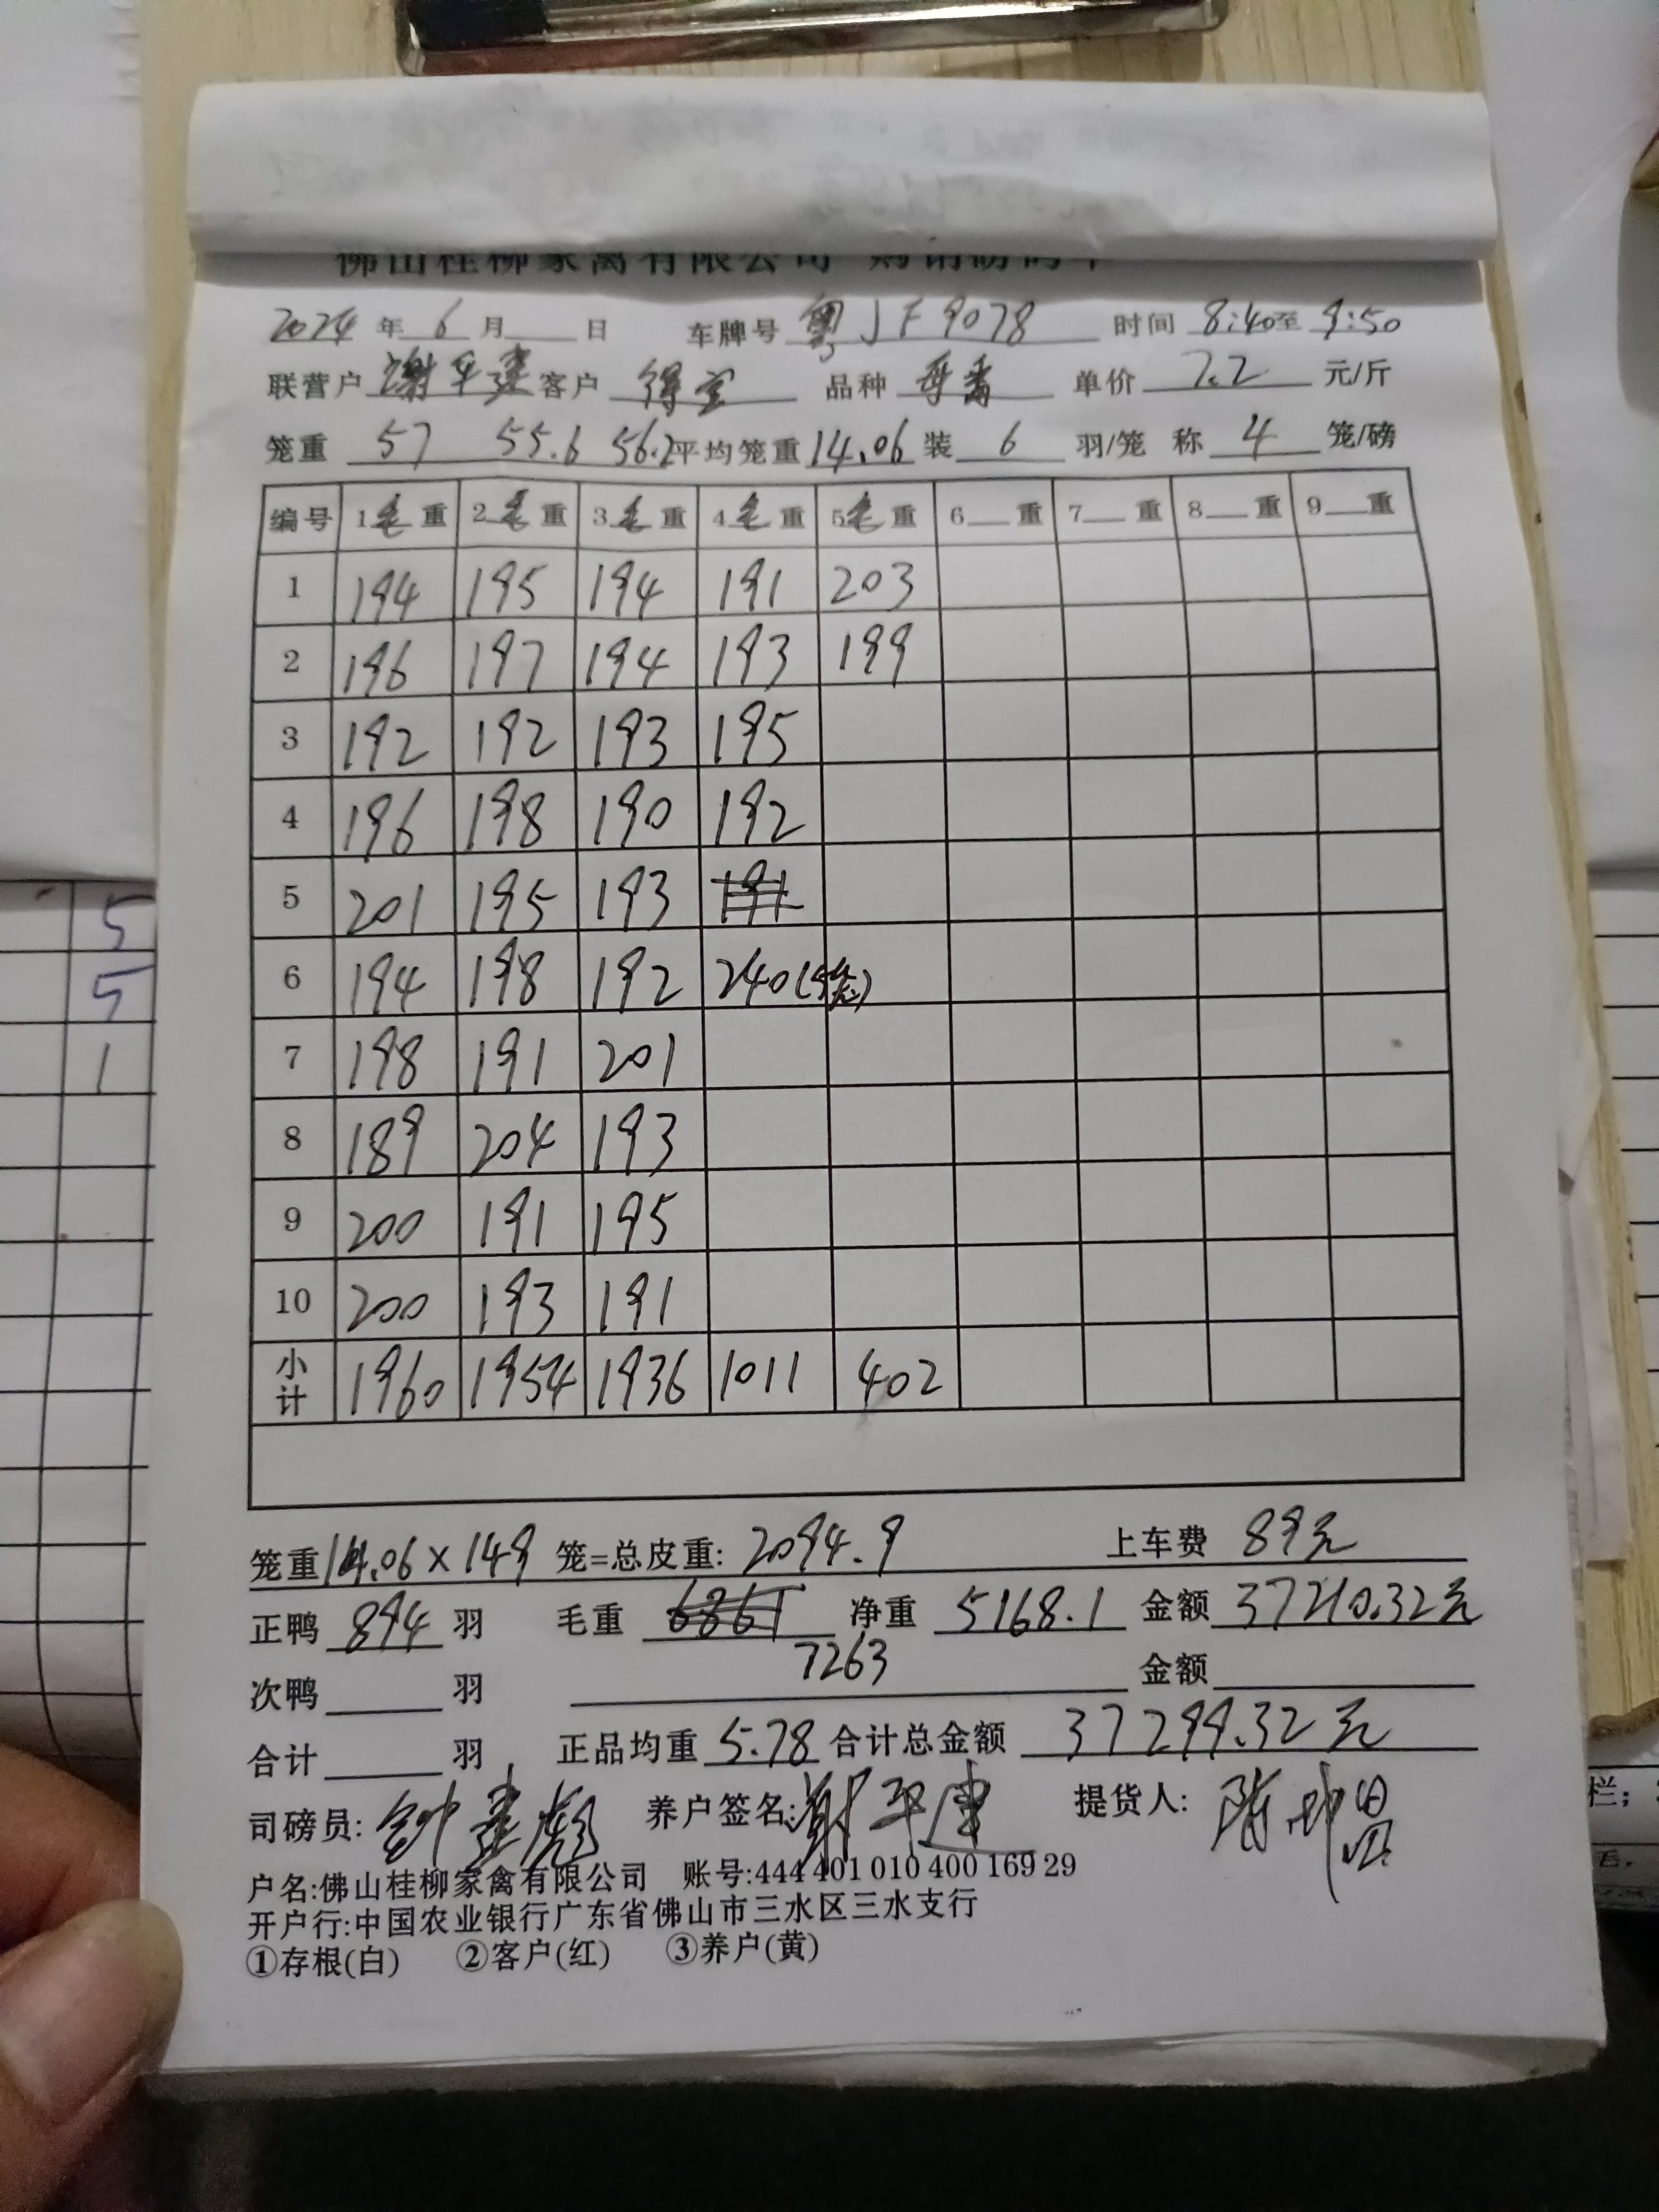 佛山桂柳家禽有限公司 购销磅码单
2024 年 6 月 日 车牌号 粤JF9078 时间 8:40 至 9:50
联营户 谢平建 客户 得宝 品种 番 单价 7.2 元/斤
笼重 57 55.6 56.2 平均笼重 14.06 装 6 羽/笼 称 4 笼/磅
编号 1毛重 2毛重 3毛重 4毛重 5毛重 6 重 7 重 8 重 9 重
1 194 195 194 191 203
2 196 197 194 193 199
3 192 192 193 195
4 196 198 190 192
5 201 195 193 191
6 194 198 192 240(5笼)
7 198 191 201
8 189 204 193
9 200 191 195
10 200 193 191
小计 1960 1954 1936 1011 402
笼重 14.06×149 笼=总皮重: 2094.9 上车费 89元
正鸭 894 羽 毛重 6861 净重 5168.1 金额 37210.32元
7263
次鸭 羽 金额
合计 羽 正品均重 5.78 合计总金额 37299.32元
司磅员: 钟建彪 养户签名: 谢平建 提货人: 陈
户名:佛山桂柳家禽有限公司 账号:444 401 010 400 169 29
开户行:中国农业银行广东省佛山市三水区三水支行
①存根(白) ②客户(红) ③养户(黄)
5
5
1
栏;
毛.